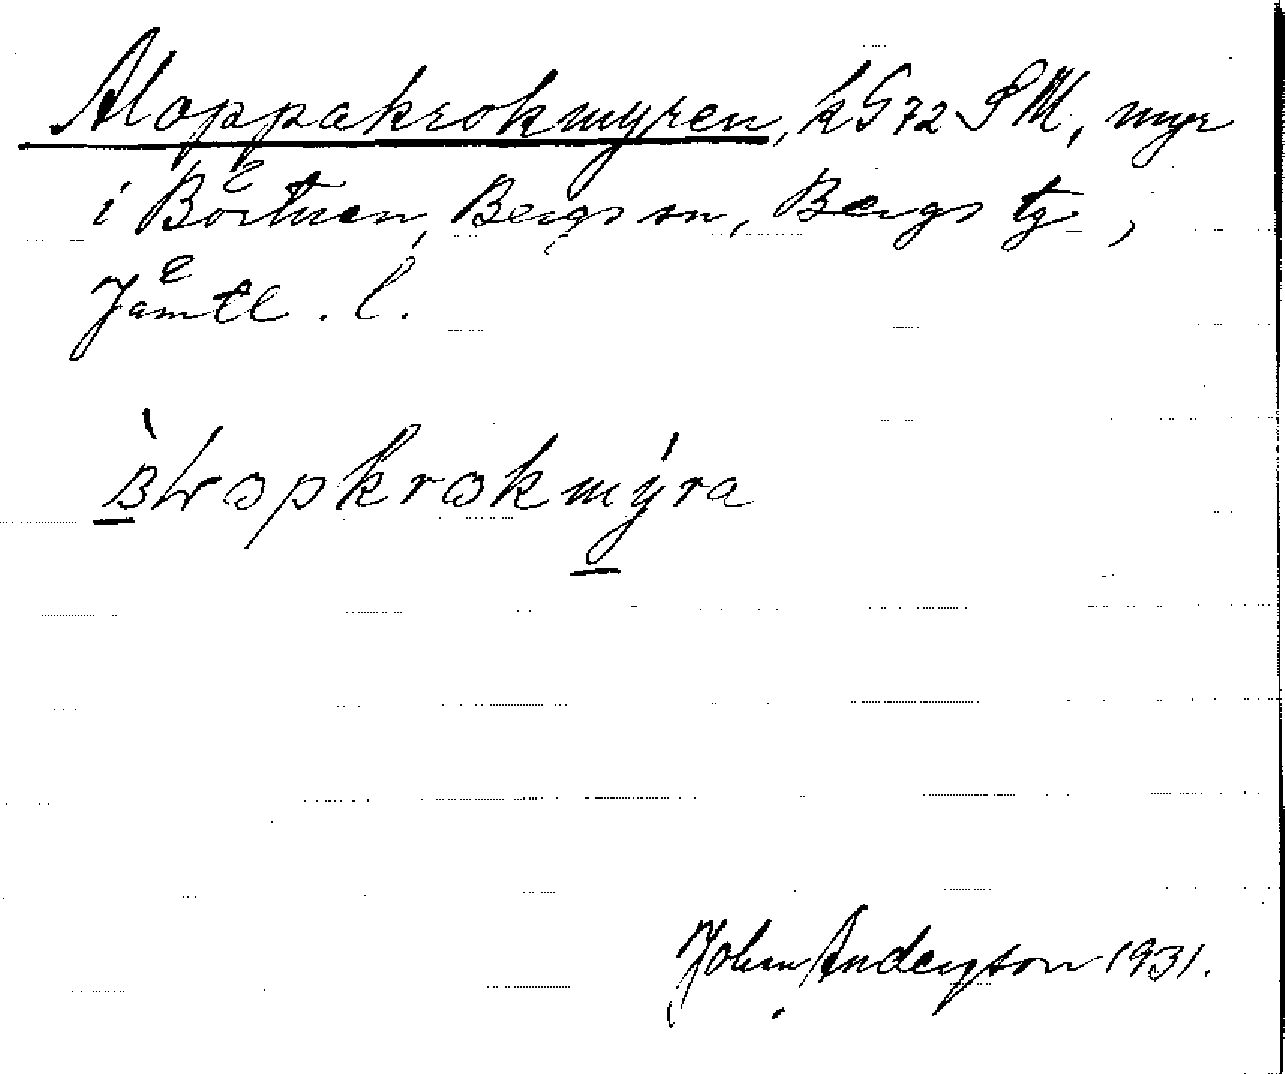 Aloppakrokmyren, k G 72 SM, myr
i Börtnen, Bergs sn, Bergs tg,
Jämtl. l.
Johan Anderzson 1931.